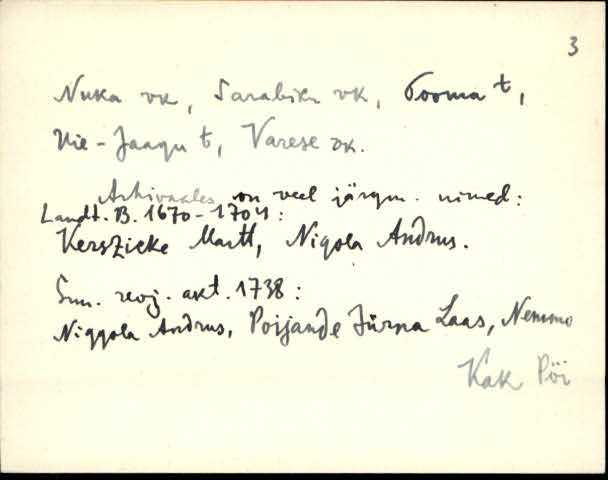 3
Nuka vk, Sarabiku vk, Tooma t,
Uie-Jaagu t, Varese vk.
Arhivaales on veel järgm. nimed:
Landt. B. 1670-1704:
Kerszicke Martt, Nigola Andrus.
Suu. revj. akt. 1738:
Niggola Andrus, Poijande Jürna Laas, Nemmo
Kak Pöi